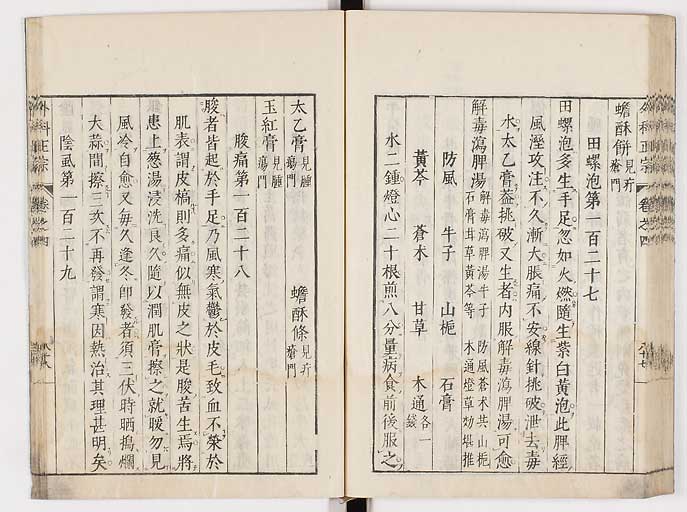 蟾酥餅見疔瘡門
田螺泡第一百二十七
田螺泡多生手足忽如火燃隨生紫白黃泡此脾經
風溼攻注不久漸大脹痛不安線針挑破泄去毒
水太乙膏葢挑破又生者內服解毒瀉脾湯可愈
解毒瀉脾湯 解毒瀉脾湯牛子 防風蒼朮共山梔 石膏甘草黃芩等 木通燈草効堪推
防風 牛子 山梔 石膏
黃芩 蒼朮 甘草 木通各一錢
水二鍾燈心二十根煎八分量病食前後服之
太乙膏見腫瘍門 蟾酥條見疔瘡門
玉紅膏見腫瘍門
朘痛第一百二十八
朘者皆起於手足乃風寒氣鬱於皮毛致血不榮於
肌表謂皮槁則多痛似無皮之狀是朘苦生焉將
患上葱湯浸洗良久隨以潤肌膏擦之就暖勿見
風冷自愈又每久逢冬卽發者須三伏時晒搗爛
大蒜間擦三次不再發謂寒因熱治其理甚明矣
陰虱第一百二十九
外科正宗 卷之四 八十八
外科正宗 卷之四 八十七